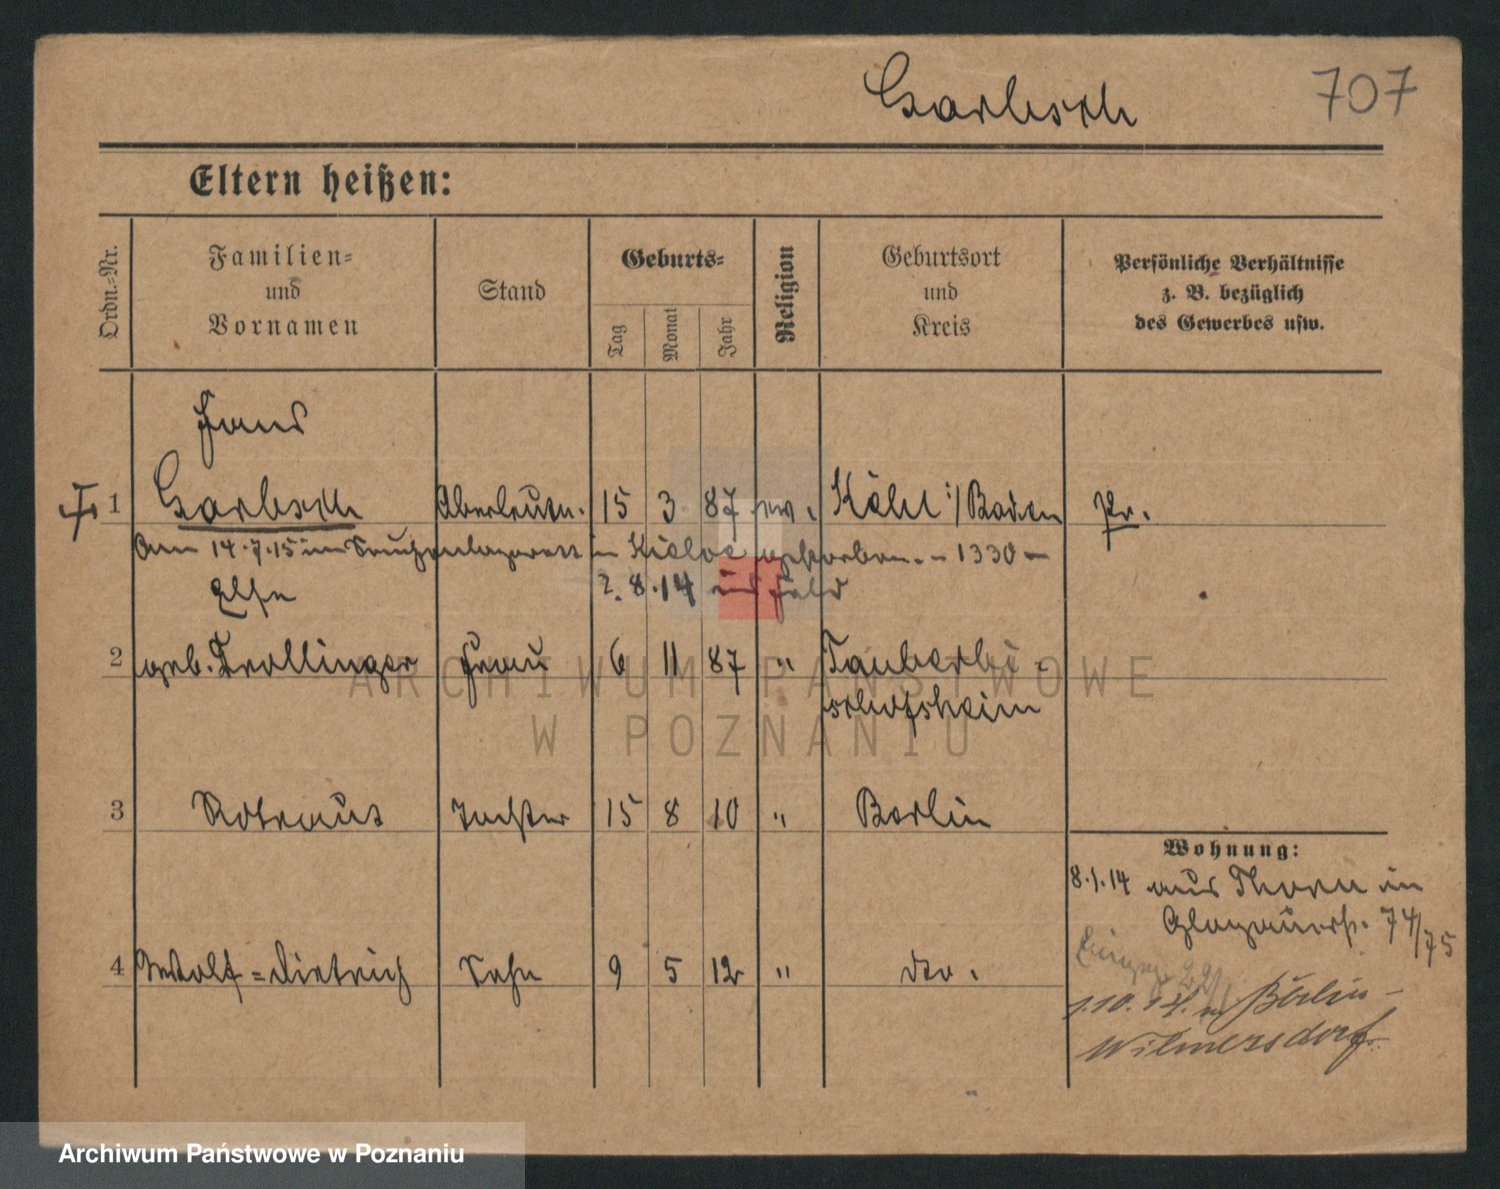 Garbsch 707
Eltern heißen:
Ordn.-Nr.
Familien-
und
Vornamen
Stand
Geburts-
Tag
Monat
Jahr
Religion
Geburtsort
und
Kreis
Persönliche Verhältnisse
z. B. bezüglich
des Gewerbes usw.
Hans
1 Garbsch Oberleutn. 15 3 87 ev. Kehl i/Baden Pr.
Am 14.7.15 im Seuchenlazarett in Kielce gestorben. - 1330 -
Else 2.8.14 ins Feld
2 geb. Trollinger Frau 6 11 87 " Tauberbi-
schofsheim
3 Rotraut Tochter 15 8 10 " Berlin
Wohnung:
8.1.14 aus Thorn in
Glogauerstr. 74/75
4 Wolf-Dietrich Sohn 9 5 12 " dto.
1.10.14. n Berlin-
Wilmersdorf.
ARCHIWUM PAŃSTWOWE
W POZNANIU
Archiwum Państwowe w Poznaniu